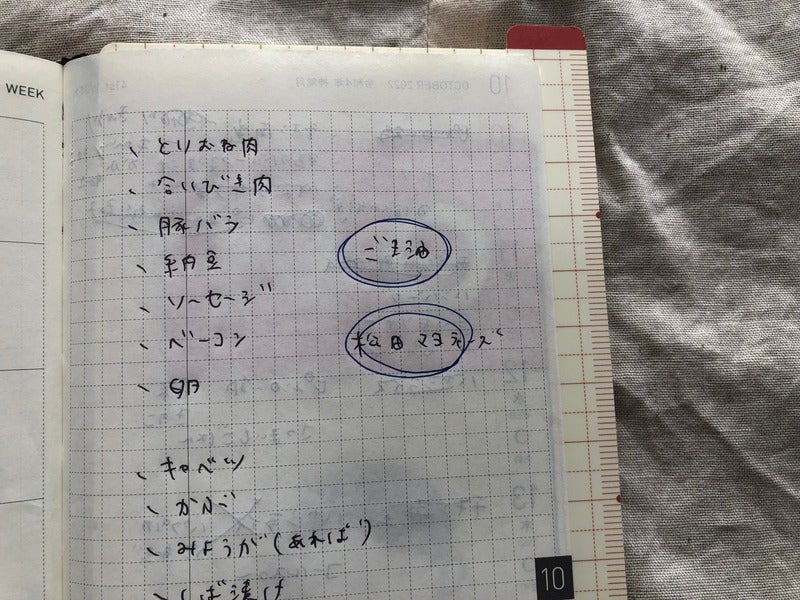 WEEK
10 OCTOBER 2022 令和4年 神無月
、とりむね肉
、合いびき肉
、豚バラ
ごま油
、納豆
、ソーセージ
松田マヨネーズ
、ベーコン
、卵
、キャベツ
、かぶ
、みょうが(あれば)
、しば漬け
10